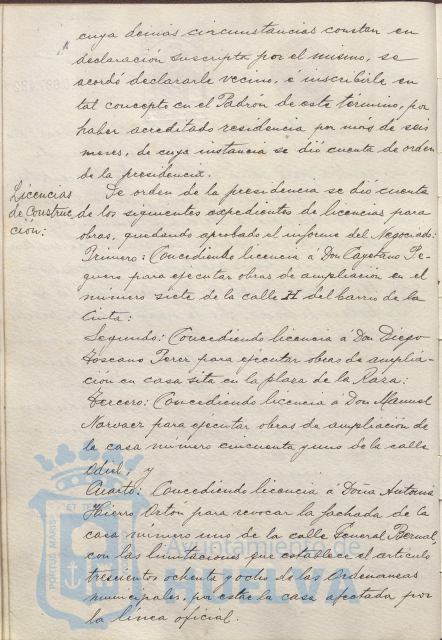 cuya demas circunstancias constan en
declaración suscripta por el mismo, se
acordó declararle vecino, é inscribirle en
tal concepto en el Padrón de este término, por
haber acreditado residencia por más de seis
meses, de cuya instancia se dió cuenta de orden
de la presidencia.
Licencias
de Construc
ción:
De orden de la presidencia se dió cuenta
de los siguientes expedientes de licencias para
obras, quedando aprobado el informe del Negociado:
Primero: Concediendo licencia a Don Cayetano Pe
guero para ejecutar obras de ampliación en el
número siete de la calle H del barrio de la
Cinta:
Segundo: Concediendo licencia a Don Diego
Toscano Perer para ejecutar obras de amplia
ción en casa sita en la plaza de la Raza:
Tercero: Concediendo licencia a Don Manuel
Narvaez para ejecutar obras de ampliación de
la casa número cincuenta y uno de la calle
Odiel, y
Cuarto: Concediendo licencia a Doña Antonia
Hierro Orton para revocar la fachada de la
casa número uno de la calle General Bernal,
con las limitaciones que establece el artículo
trescientos ochenta y ocho de las Ordenanzas
municipales, por estar la casa afectada por
la línea oficial.
PORTUS MARIS ET TERRAE
Ayuntamiento de